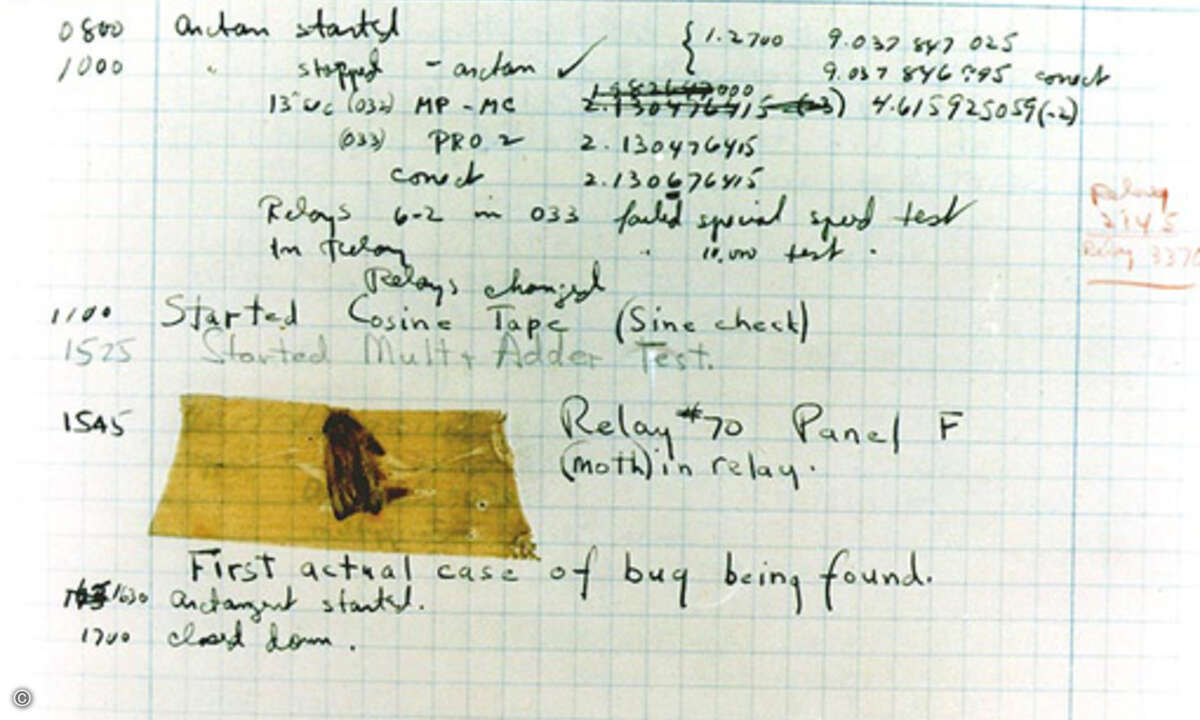 0800 arctan started { 1.2700 9.037 847 025
1000 " stopped - arctan ✓ 9.037 846 995 conect
13"uc (032) MP - MC 2.130476415 (-3) 4.615925059(-2)
(033) PRO 2 2.130476415
conect 2.130676415
Relays 6-2 in 033 failed special speed test
In Relay " 10,000 test .
Relays changed
Relay
2145
Relay 3370
1100 Started Cosine Tape (Sine check)
1525 Started Mult + Adder Test.
1545 Relay #70 Panel F
(moth) in relay.
First actual case of bug being found.
1630 arctangent started.
1700 closed down.
©